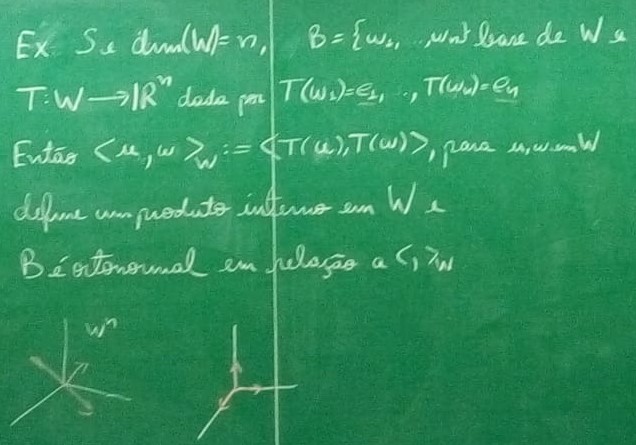 Ex. Se dim(W)=n, B = {w₁, ..., wn} base de W e
T: W → ℝⁿ dada por T(w₁)=e₁, .., T(wn)=en
Então <u, w>_W := <T(u), T(w)>, para u, w em W
define um produto interno em W e
B é ortonormal em relação a <,>_W
Wⁿ